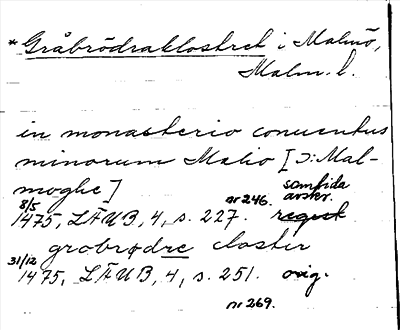 *Gråbrödraklostret i Malmö,
Malm. l.
in monasterio conuentus
minorum Malio [ɔ: Mal-
moghe]
8/5 1475, LÄUB, 4, s. 227. nr 246. samtida avskr. regest
grobrødre closter
31/12 1475, LÄUB, 4, s. 251. orig.
nr 269.